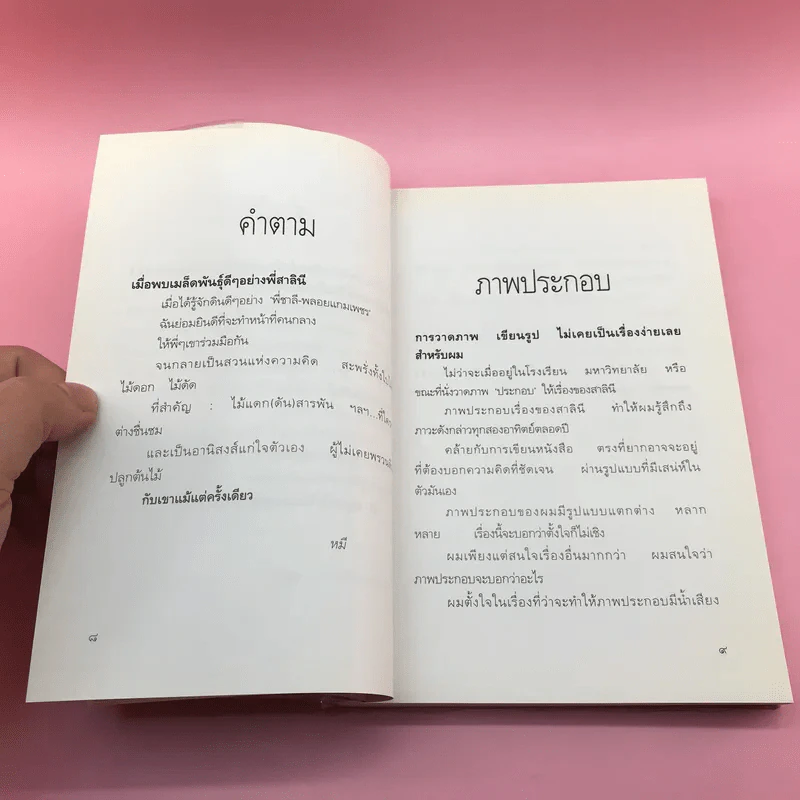 คำตาม
เมื่อพบเมล็ดพันธุ์ดีๆอย่างพี่สาลินี
เมื่อได้รู้จักดินดีๆอย่าง 'พี่ชาลี-พลอยแกมเพชร'
ฉันย่อมยินดีที่จะทำหน้าที่คนกลาง
ให้พี่ๆเขาร่วมมือกัน
จนกลายเป็นสวนแห่งความคิด สะพรั่งทั้งไป
ไม้ดอก ไม้ดัด
ที่สำคัญ : ไม้แดก(ดัน)สารพัน ฯลฯ...ที่ใคร
ต่างชื่นชม
และเป็นอานิสงส์แก่ใจตัวเอง ผู้ไม่เคยพรวนดิ
ปลูกต้นไม้
กับเขาแม้แต่ครั้งเดียว
หมี
๘
ภาพประกอบ
การวาดภาพ เขียนรูป ไม่เคยเป็นเรื่องง่ายเลย
สำหรับผม
ไม่ว่าจะเมื่ออยู่ในโรงเรียน มหาวิทยาลัย หรือ
ขณะที่นั่งวาดภาพ 'ประกอบ' ให้เรื่องของสาลินี
ภาพประกอบเรื่องของสาลินี ทำให้ผมรู้สึกถึง
ภาวะดังกล่าวทุกสองอาทิตย์ตลอดปี
คล้ายกับการเขียนหนังสือ ตรงที่ยากอาจจะอยู่
ที่ต้องบอกความคิดที่ชัดเจน ผ่านรูปแบบที่มีเสน่ห์ใน
ตัวมันเอง
ภาพประกอบของผมมีรูปแบบแตกต่าง หลาก
หลาย เรื่องนี้จะบอกว่าตั้งใจก็ไม่เชิง
ผมเพียงแต่สนใจเรื่องอื่นมากกว่า ผมสนใจว่า
ภาพประกอบจะบอกว่าอะไร
ผมตั้งใจในเรื่องที่ว่าจะทำให้ภาพประกอบมีน้ำเสียง
๙